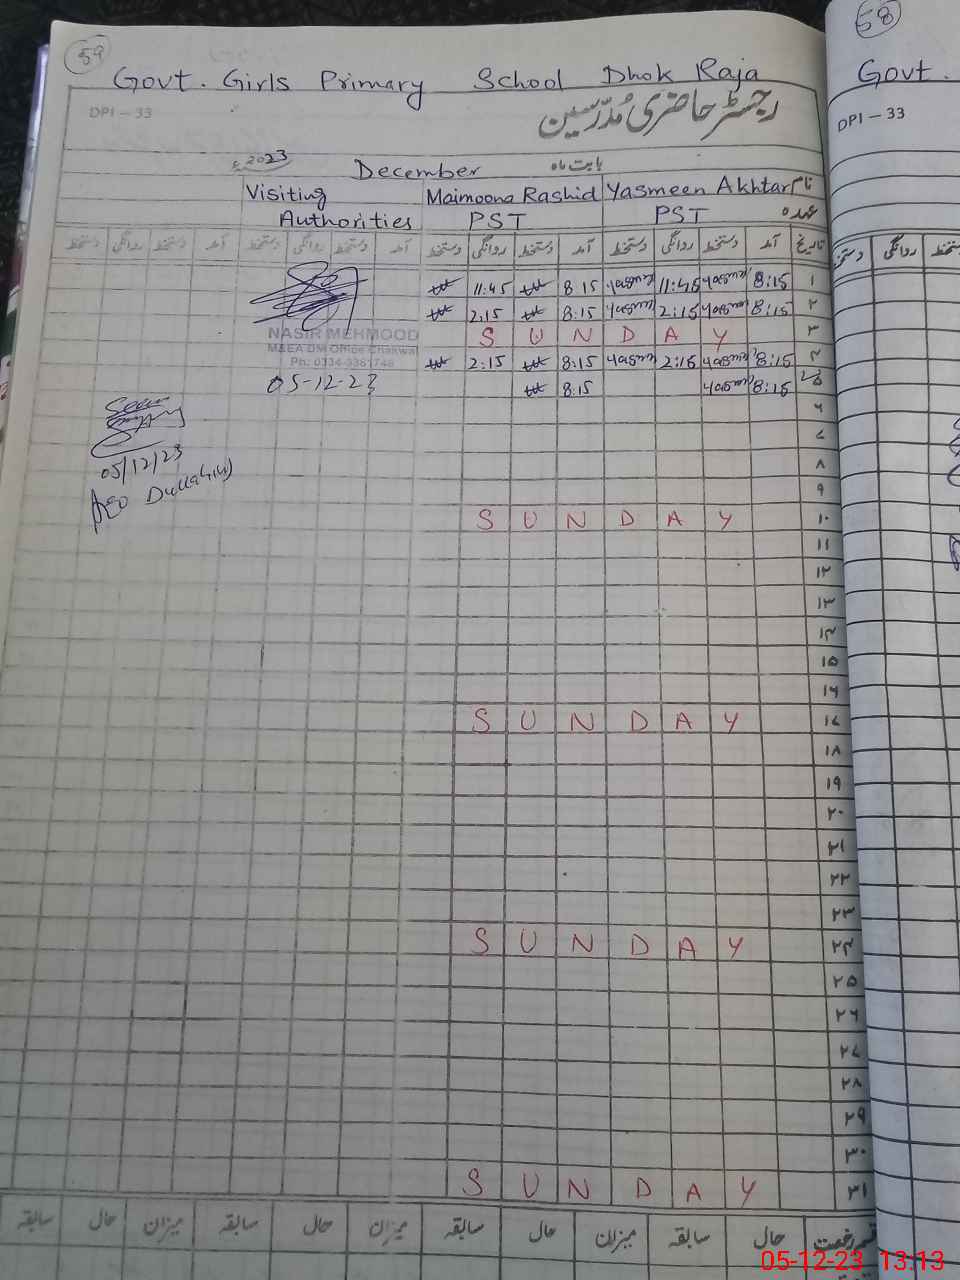 59
58
Govt. Girls Primary School Dhok Raja
Govt.
DPI - 33
رجسٹر حاضری مُدرّسین
DPI - 33
2023ء December بابت ماہ
Visiting Maimoona Rashid Yasmeen Akhtar نام
Authorities PST PST عہدہ
تاریخ آمد دستخط روانگی دستخط آمد دستخط روانگی دستخط آمد دستخط روانگی دستخط آمد دستخط روانگی دستخط
روانگی دستخط
11:45 8:15 11:45 8:15 ۱
2:15 8:15 2:15 8:15 ۲
S U N D A Y ۳
NASIR MEHMOOD
M&EA DM Office Chakwal
2:15 8:15 2:15 8:15 ۴
Ph: 0334-3361746
05-12-23 8:15 8:15 ۵
۶
05/12/23 ۷
AEO ۸
۹
S U N D A Y ۱۰
۱۱
۱۲
۱۳
۱۴
۱۵
۱۶
S U N D A Y ۱۷
۱۸
۱۹
۲۰
۲۱
۲۲
۲۳
S U N D A Y ۲۴
۲۵
۲۶
۲۷
۲۸
۲۹
۳۰
S U N D A Y ۳۱
قسم رخصت حال سابقہ میزان حال سابقہ میزان حال سابقہ میزان حال سابقہ
05-12-23 13:13